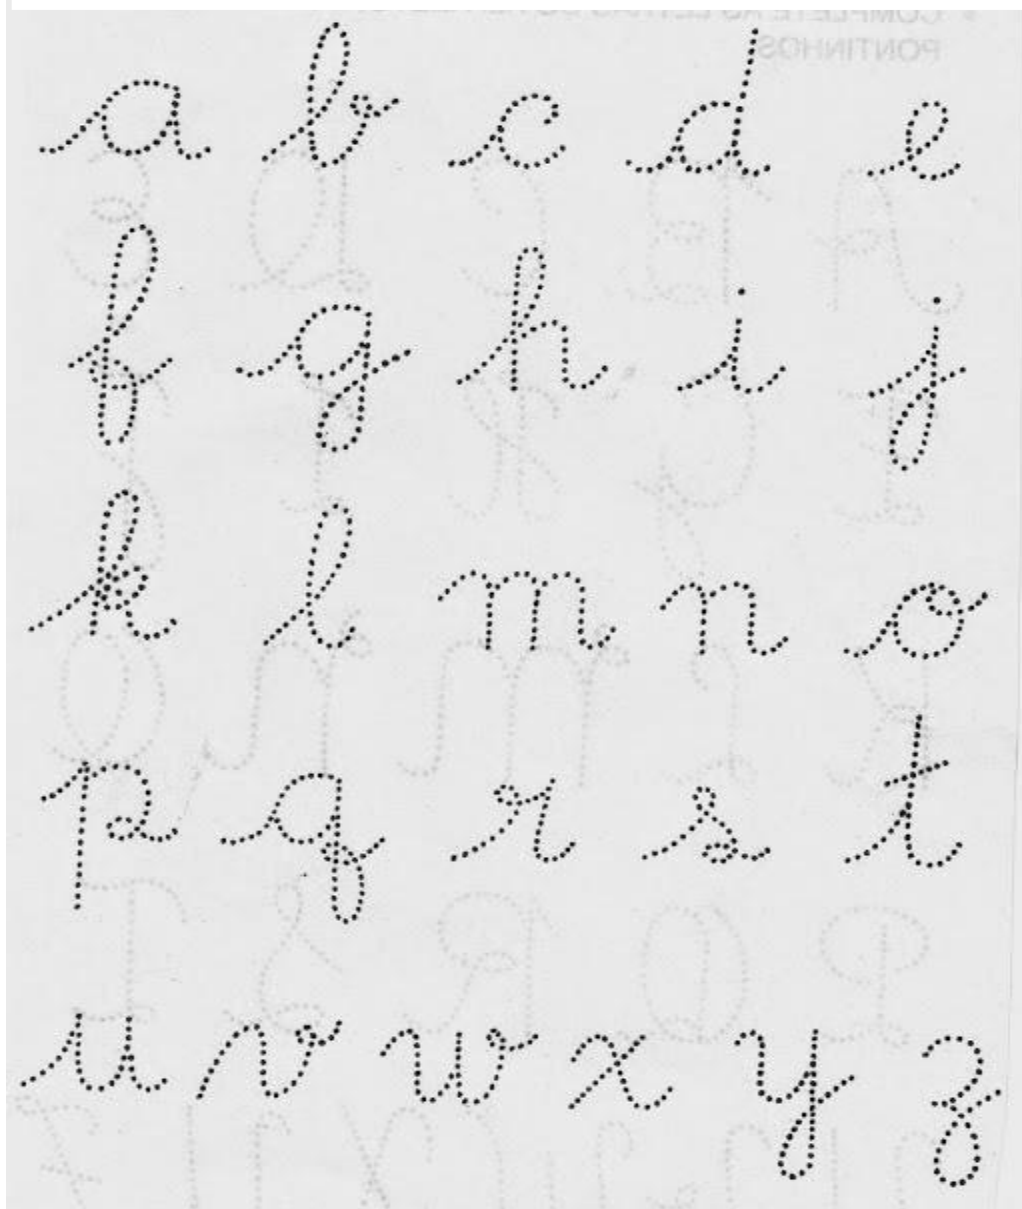 a b c d e
f g h i j
k l m n o
p q r s t
u v w x y z